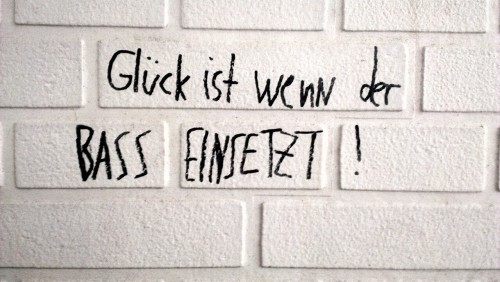 Glück ist wenn der
BASS EINSETZT !